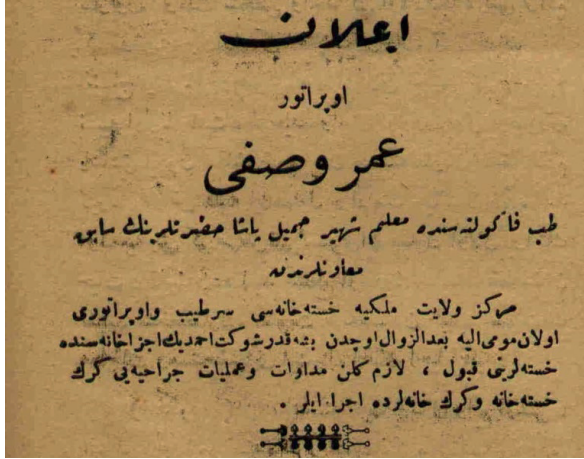 اعلان
اوپراتور
عمر وصفی
طب فاكولته‌سنده معلم شهیر جمیل پاشا حضرتلرینك سابق
معاونلرندن
مركز ولایت ملكیه خسته‌خانه‌سی سرطبیب واوپراتوری
اولان مومی‌الیه بعدالزوال اوچدن بشه قدر شوكت احمد بك اجزاخانه‌سنده
خسته‌لرینی قبول ، لازم كلن مداوات وعملیات جراحیه‌یی كرك
خسته‌خانه وكرك خانه‌لرده اجرا ایلر .